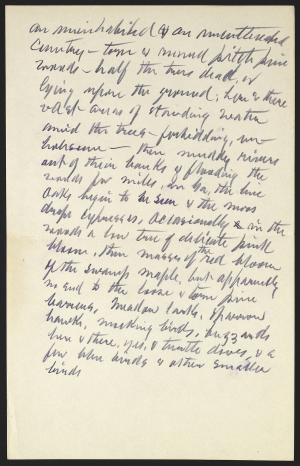 an uninhabited & an uncultivated
country — torn & ruined pitch pine
woods — half the trees dead, or
lying upon the ground; here & there
vast areas of standing water
amid the trees — forbidding, un-
wholesome — then muddy rivers
out of their banks & flooding the
woods for miles, in Ga, the live
Oaks begin to be seen & the moss
draped cypresses, Occasionally & in the
woods a low tree of delicate pink
bloom, then masses of the red bloom
of the swamp maple, but apparently
no end to the loose & torn pine
barrens, Meadow larks, sparrow
hawks, mocking birds, buzzards
here & there, yes, & turtle doves, & a
few blue birds & other smaller
birds